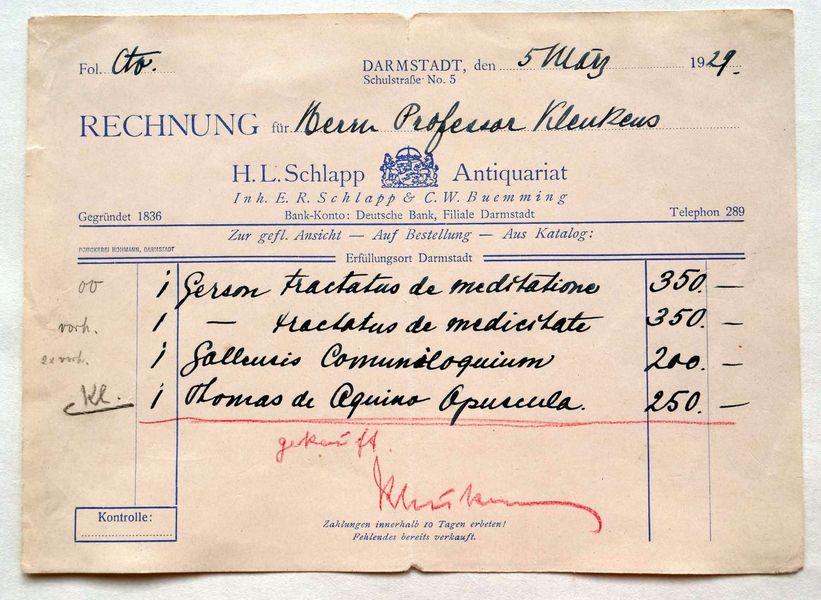 Fol. Cto.
DARMSTADT, den 5 März 1929.
Schulstraße No. 5
RECHNUNG für Herrn Professor Kleukens
H. L. Schlapp Antiquariat
Inh. E. R. Schlapp & C. W. Buemming
Gegründet 1836 Bank-Konto: Deutsche Bank, Filiale Darmstadt Telephon 289
Zur gefl. Ansicht — Auf Bestellung — Aus Katalog:
DRUCKEREI HOHMANN, DARMSTADT
Erfüllungsort Darmstadt
00 1 Gerson tractatus de meditatione 350. —
vorh. 1 — tractatus de medicitate 350. —
2x vorh. 1 Gallensis Comuniloquium 200. —
Kl. 1 Thomas de Aquino Opuscula. 250. —
gekauft.
Kleukens
Kontrolle:
Zahlungen innerhalb 10 Tagen erbeten!
Fehlendes bereits verkauft.